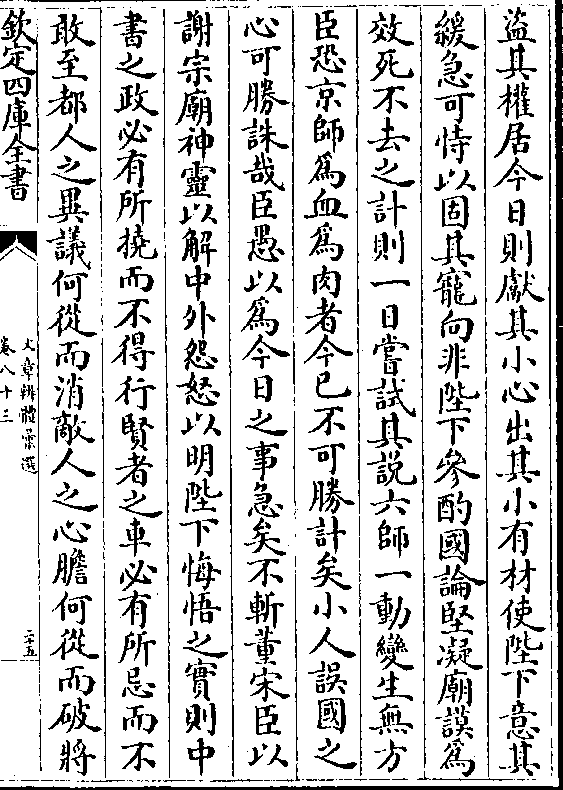 盜其權居今日則獻其小心出其小有材使陛下意其
緩急可恃以固其寵向非陛下參酌國論堅凝廟謨為
效死不去之計則一日嘗試其說六師一動變生無方
臣恐京師為血為肉者今已不可勝計矣小人誤國之
心可勝誅哉臣愚以為今日之事急矣不斬董宋臣以
謝宗廟神靈以解中外怨怒以明陛下悔悟之實則中
書之政必有所撓而不得行賢者之車必有所忌而不
敢至都人之異議何從而消敵人之心膽何從而破將
欽定四庫全書
文章辨體彙選
卷八十三
二十五